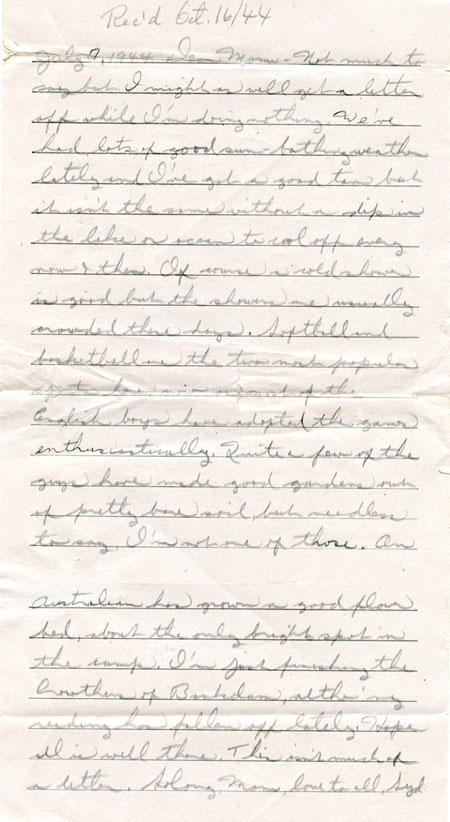 Rec'd Oct. 16/44
July 9, 1944 Dear Mom - Not much to
say but I might as well get a letter
off while I'm doing nothing. We've
had lots of good sun-bathing weather
lately and I've got a good tan but
it isn't the same without a dip in
the lake or ocean to cool off every
now & then. Of course a cold shower
is good but the showers are usually
crowded these days. Softball and
basketball are the two most popular
sports here now of the
English boys have adopted the games
enthusiastically. Quite a few of the
guys have made good gardens out
of pretty bare soil, but needless
to say, I'm not one of those. An
Australian has grown a good flower
bed, about the only bright spot in
the camp. I'm just finishing the
Crowthers of Bankdam, altho' my
reading has fallen off lately. Hope
all is well there. This isn't much of
a letter. So long, Mom, love to all, Syd